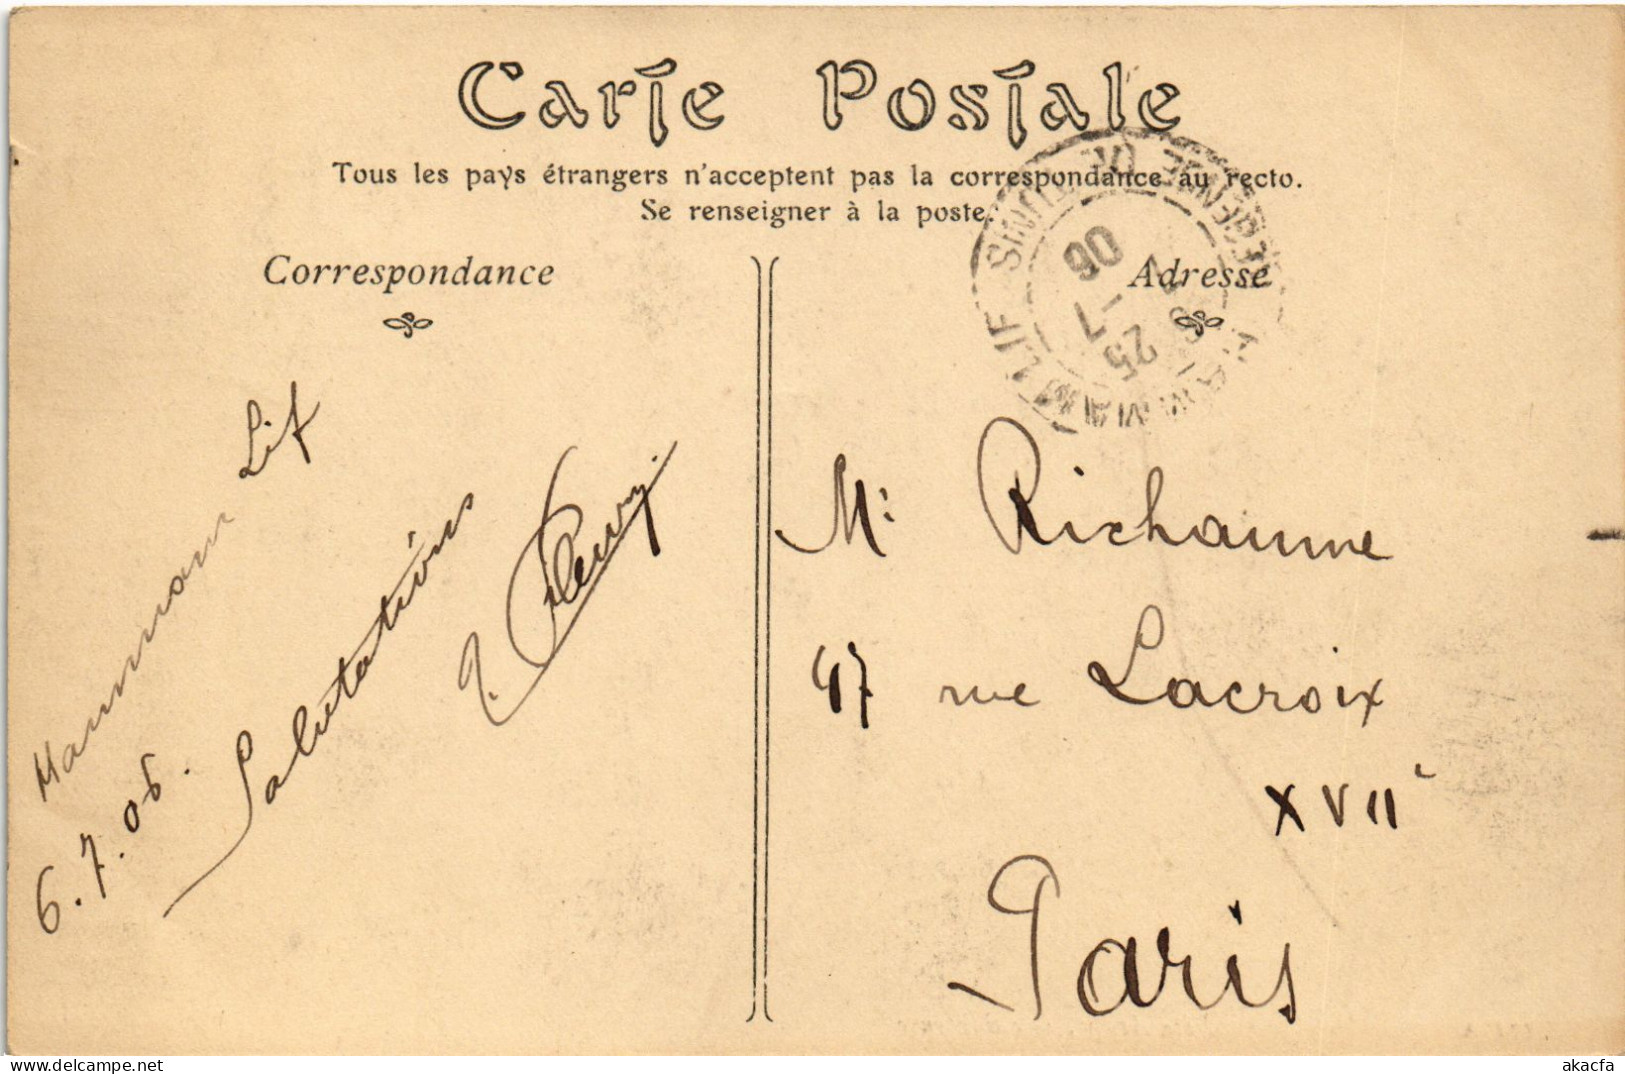 Carte Postale
Tous les pays étrangers n'acceptent pas la correspondance au recto.
Se renseigner à la poste.
Correspondance
Adresse
HAMMAM-LIF
RÉGENCE DE TUNIS
25 -7 06
Hammam Lif
6.7.06.
Salutations
Mr Richaume
47 rue Lacroix
XVIIe
Paris
akacfa